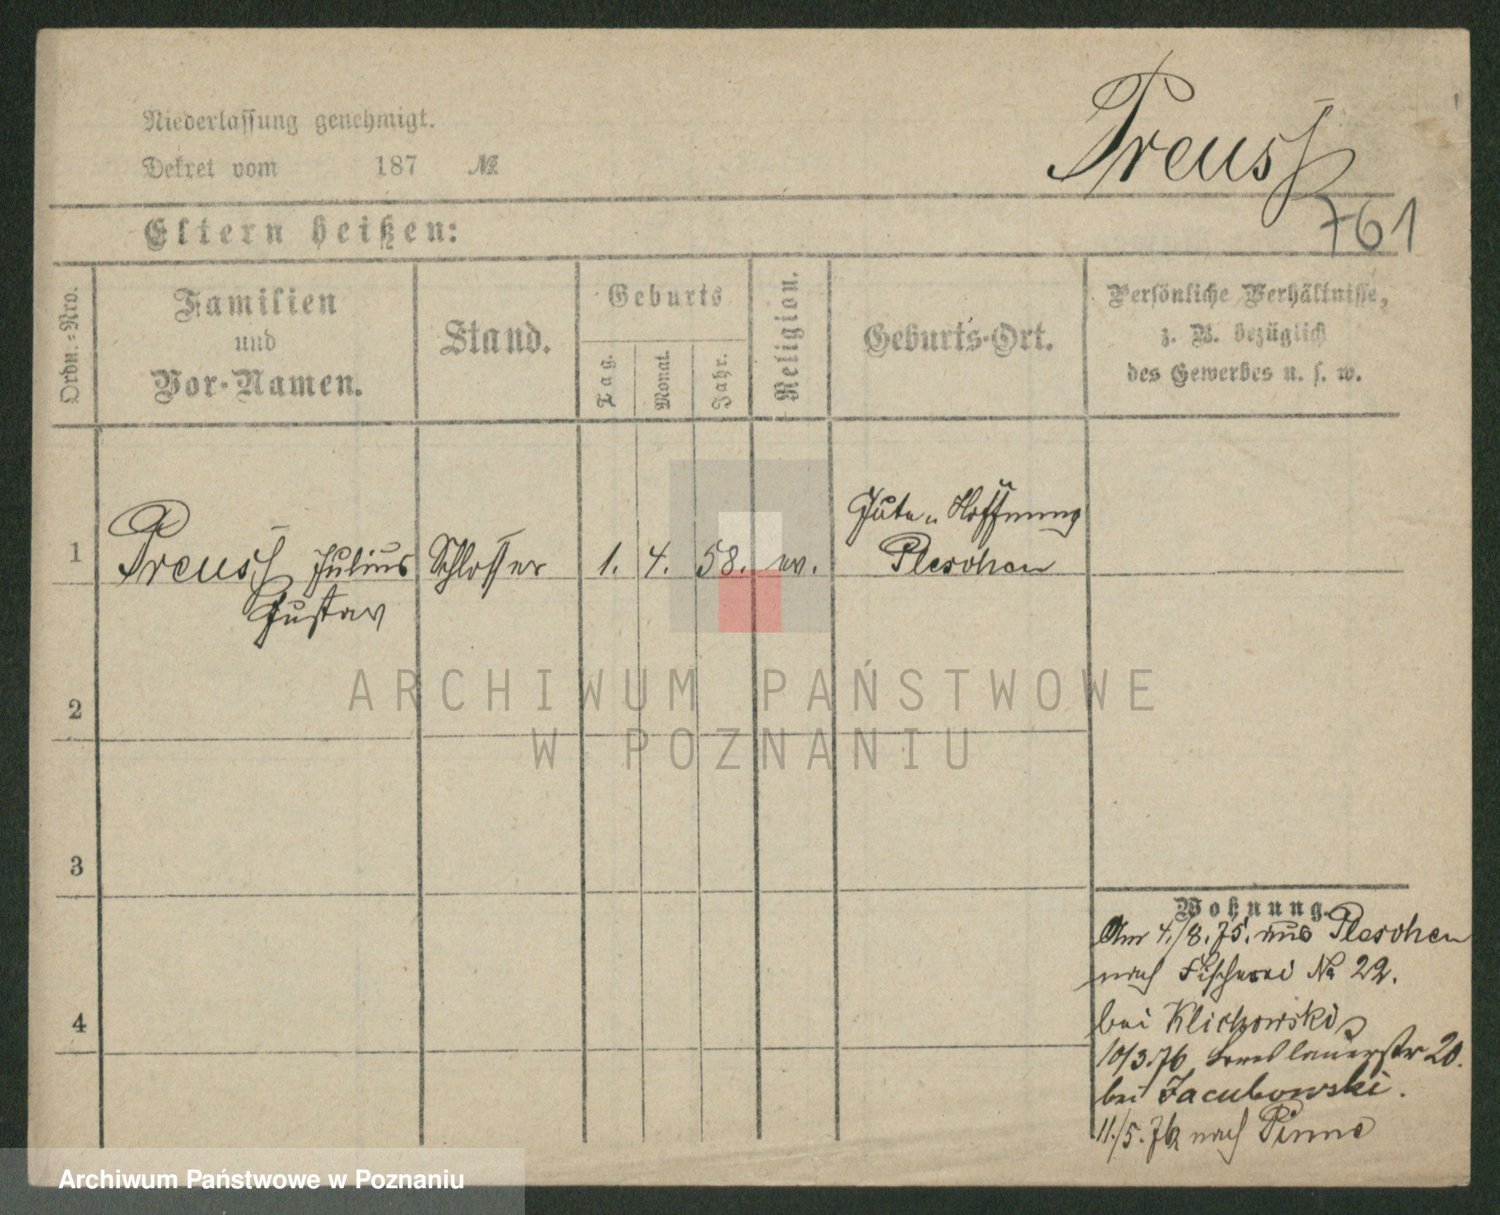 Niederlassung genehmigt.
Dekret vom 187 №
Preuss
761
Eltern heißen:
Ordn.=Nro.
Familien
und
Vor-Namen.
Stand.
Geburts
Tag.
Monat.
Jahr.
Religion.
Geburts-Ort.
Persönliche Verhältnisse,
z. B. bezüglich
des Gewerbes u. s. w.
1 Preuss Julius Schlosser 1. 4. 58. ev. Gute Hoffnung
Gustav Pleschen
2
3
4
ARCHIWUM PAŃSTWOWE
W POZNANIU
Wohnung.
Am 4./8. 75. aus Pleschen
nach Fischerei No 22.
bei Klichowski
10/3.76 Breslauerstr 20.
bei Jacubowski.
11./5. 76 nach Pinne
Archiwum Państwowe w Poznaniu